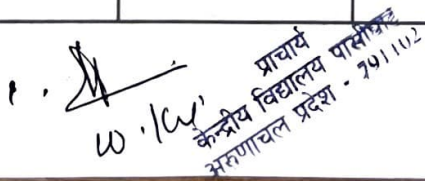 प्राचार्य
केन्द्रीय विद्यालय पासीघाट
अरुणाचल प्रदेश - 791102